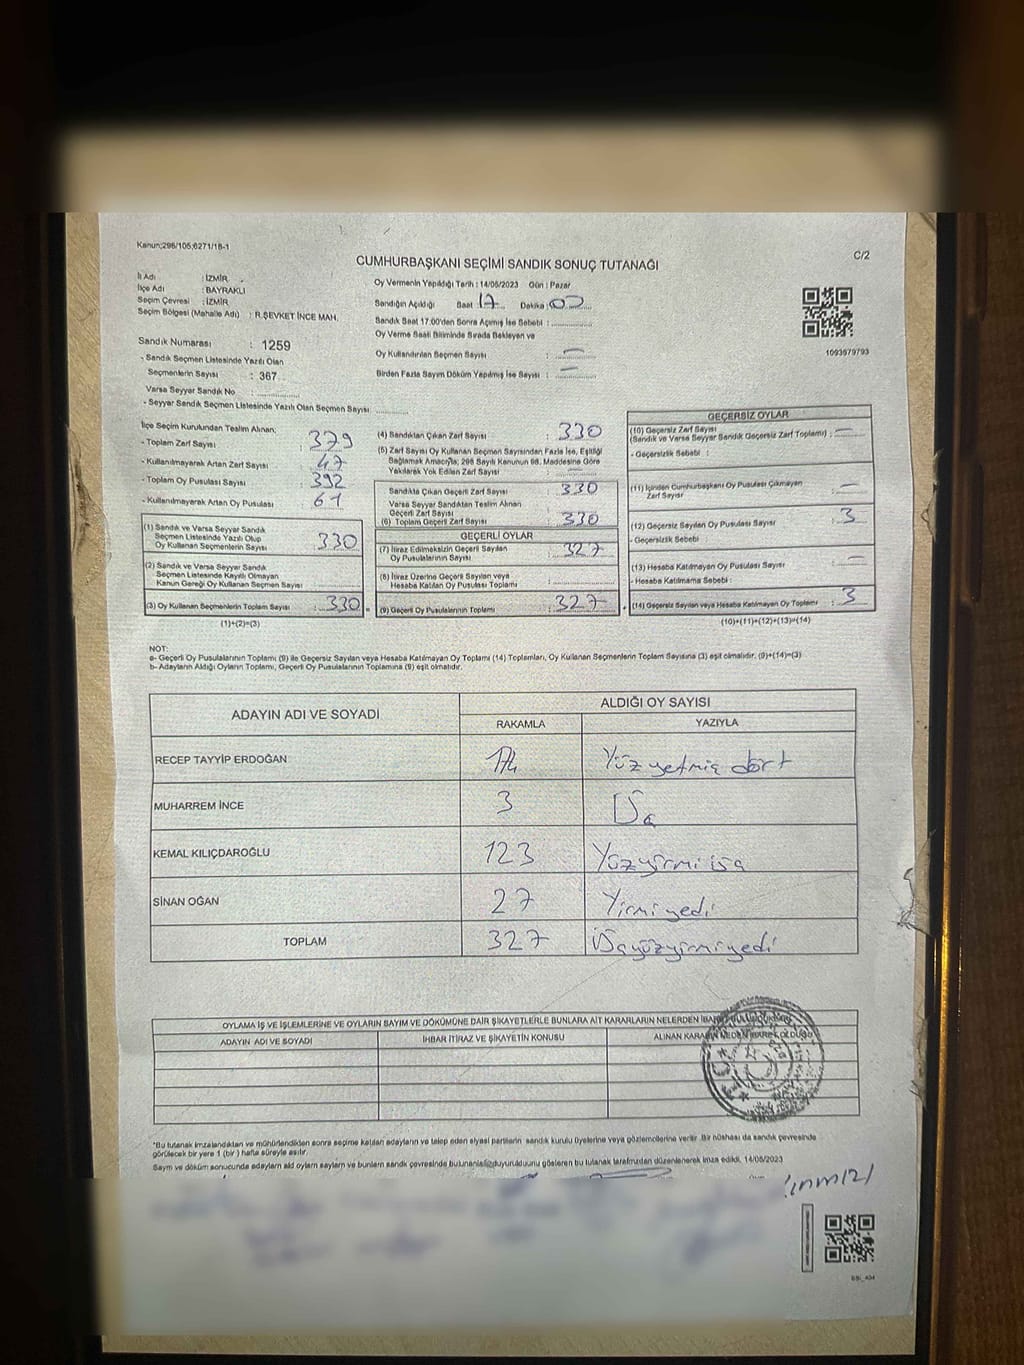 Kanun;298/105,6271/18-1
C/2
CUMHURBAŞKANI SEÇİMİ SANDIK SONUÇ TUTANAĞI
İl Adı : İZMİR
İlçe Adı : BAYRAKLI
Seçim Çevresi : İZMİR
Seçim Bölgesi (Mahalle Adı) : R.ŞEVKET İNCE MAH.
Sandık Numarası : 1259
- Sandık Seçmen Listesinde Yazılı Olan
Seçmenlerin Sayısı : 367
Varsa Seyyar Sandık No :
- Seyyar Sandık Seçmen Listesinde Yazılı Olan Seçmen Sayısı
Oy Vermenin Yapıldığı Tarih : 14/05/2023 Gün : Pazar
Sandığın Açıldığı Saat 17 Dakika : 00
Sandık Saat 17:00'den Sonra Açılmış İse Sebebi :
Oy Verme Saati Bitiminde Sırada Bekleyen ve
Oy Kullandırılan Seçmen Sayısı : —
Birden Fazla Sayım Döküm Yapılmış İse Sayısı : —
1093979793
İlçe Seçim Kurulundan Teslim Alınan;
- Toplam Zarf Sayısı 379
- Kullanılmayarak Artan Zarf Sayısı 47
- Toplam Oy Pusulası Sayısı 392
- Kullanılmayarak Artan Oy Pusulası 61
(1) Sandık ve Varsa Seyyar Sandık
Seçmen Listesinde Yazılı Olup
Oy Kullanan Seçmenlerin Sayısı 330
(2) Sandık ve Varsa Seyyar Sandık
Seçmen Listesinde Kayıtlı Olmayan
Kanun Gereği Oy Kullanan Seçmen Sayısı
(3) Oy Kullanan Seçmenlerin Toplam Sayısı : 330
(1)+(2)=(3)
(4) Sandıktan Çıkan Zarf Sayısı : 330
(5) Zarf Sayısı Oy Kullanan Seçmen Sayısından Fazla İse, Eşitliği
Sağlamak Amacıyla; 298 Sayılı Kanunun 98. Maddesine Göre
Yakılarak Yok Edilen Zarf Sayısı :
Sandıkta Çıkan Geçerli Zarf Sayısı : 330
Varsa Seyyar Sandıktan Teslim Alınan
Geçerli Zarf Sayısı
(6) Toplam Geçerli Zarf Sayısı : 330
GEÇERLİ OYLAR
(7) İtiraz Edilmeksizin Geçerli Sayılan
Oy Pusulalarının Sayısı : 327
(8) İtiraz Üzerine Geçerli Sayılan veya
Hesaba Katılan Oy Pusulası Toplamı :
(9) Geçerli Oy Pusulalarının Toplamı : 327
GEÇERSİZ OYLAR
(10) Geçersiz Zarf Sayısı
(Sandık ve Varsa Seyyar Sandık Geçersiz Zarf Toplamı) : —
- Geçersizlik Sebebi :
(11) İçinden Cumhurbaşkanı Oy Pusulası Çıkmayan
Zarf Sayısı —
(12) Geçersiz Sayılan Oy Pusulası Sayısı : 3
- Geçersizlik Sebebi
(13) Hesaba Katılmayan Oy Pusulası Sayısı :
- Hesaba Katılmama Sebebi :
(14) Geçersiz Sayılan veya Hesaba Katılmayan Oy Toplamı : 3
(10)+(11)+(12)+(13)=(14)
NOT:
a- Geçerli Oy Pusulalarının Toplamı (9) ile Geçersiz Sayılan veya Hesaba Katılmayan Oy Toplamı (14) Toplamları, Oy Kullanan Seçmenlerin Toplam Sayısına (3) eşit olmalıdır. (9)+(14)=(3)
b- Adayların Aldığı Oyların Toplamı, Geçerli Oy Pusulalarının Toplamına (9) eşit olmalıdır.
ADAYIN ADI VE SOYADI
ALDIĞI OY SAYISI
RAKAMLA YAZIYLA
RECEP TAYYİP ERDOĞAN 174 Yüz yetmiş dört
MUHARREM İNCE 3 Üç
KEMAL KILIÇDAROĞLU 123 Yüzyirmi üç
SİNAN OĞAN 27 Yirmi yedi
TOPLAM 327 Üçyüzyirmiyedi
OYLAMA İŞ VE İŞLEMLERİNE VE OYLARIN SAYIM VE DÖKÜMÜNE DAİR ŞİKAYETLERLE BUNLARA AİT KARARLARIN NELERDEN İBARET BULUNDUĞU
ADAYIN ADI VE SOYADI İHBAR İTİRAZ VE ŞİKAYETİN KONUSU ALINAN KARARIN NEDEN İBARET OLDUĞU
*Bu tutanak imzalandıktan ve mühürlendikten sonra seçime katılan adayların ve talep eden siyasi partilerin sandık kurulu üyelerine veya gözlemcilerine verilir. Bir nüshası da sandık çevresinde
görülecek bir yere 1 (bir) hafta süreyle asılır.
Sayım ve döküm sonucunda adayların aldığı oyların sayılarını ve bunların sandık çevresinde bulunanlara duyurulduğunu gösteren bu tutanak tarafımızdan düzenlenerek imza edildi. 14/05/2023